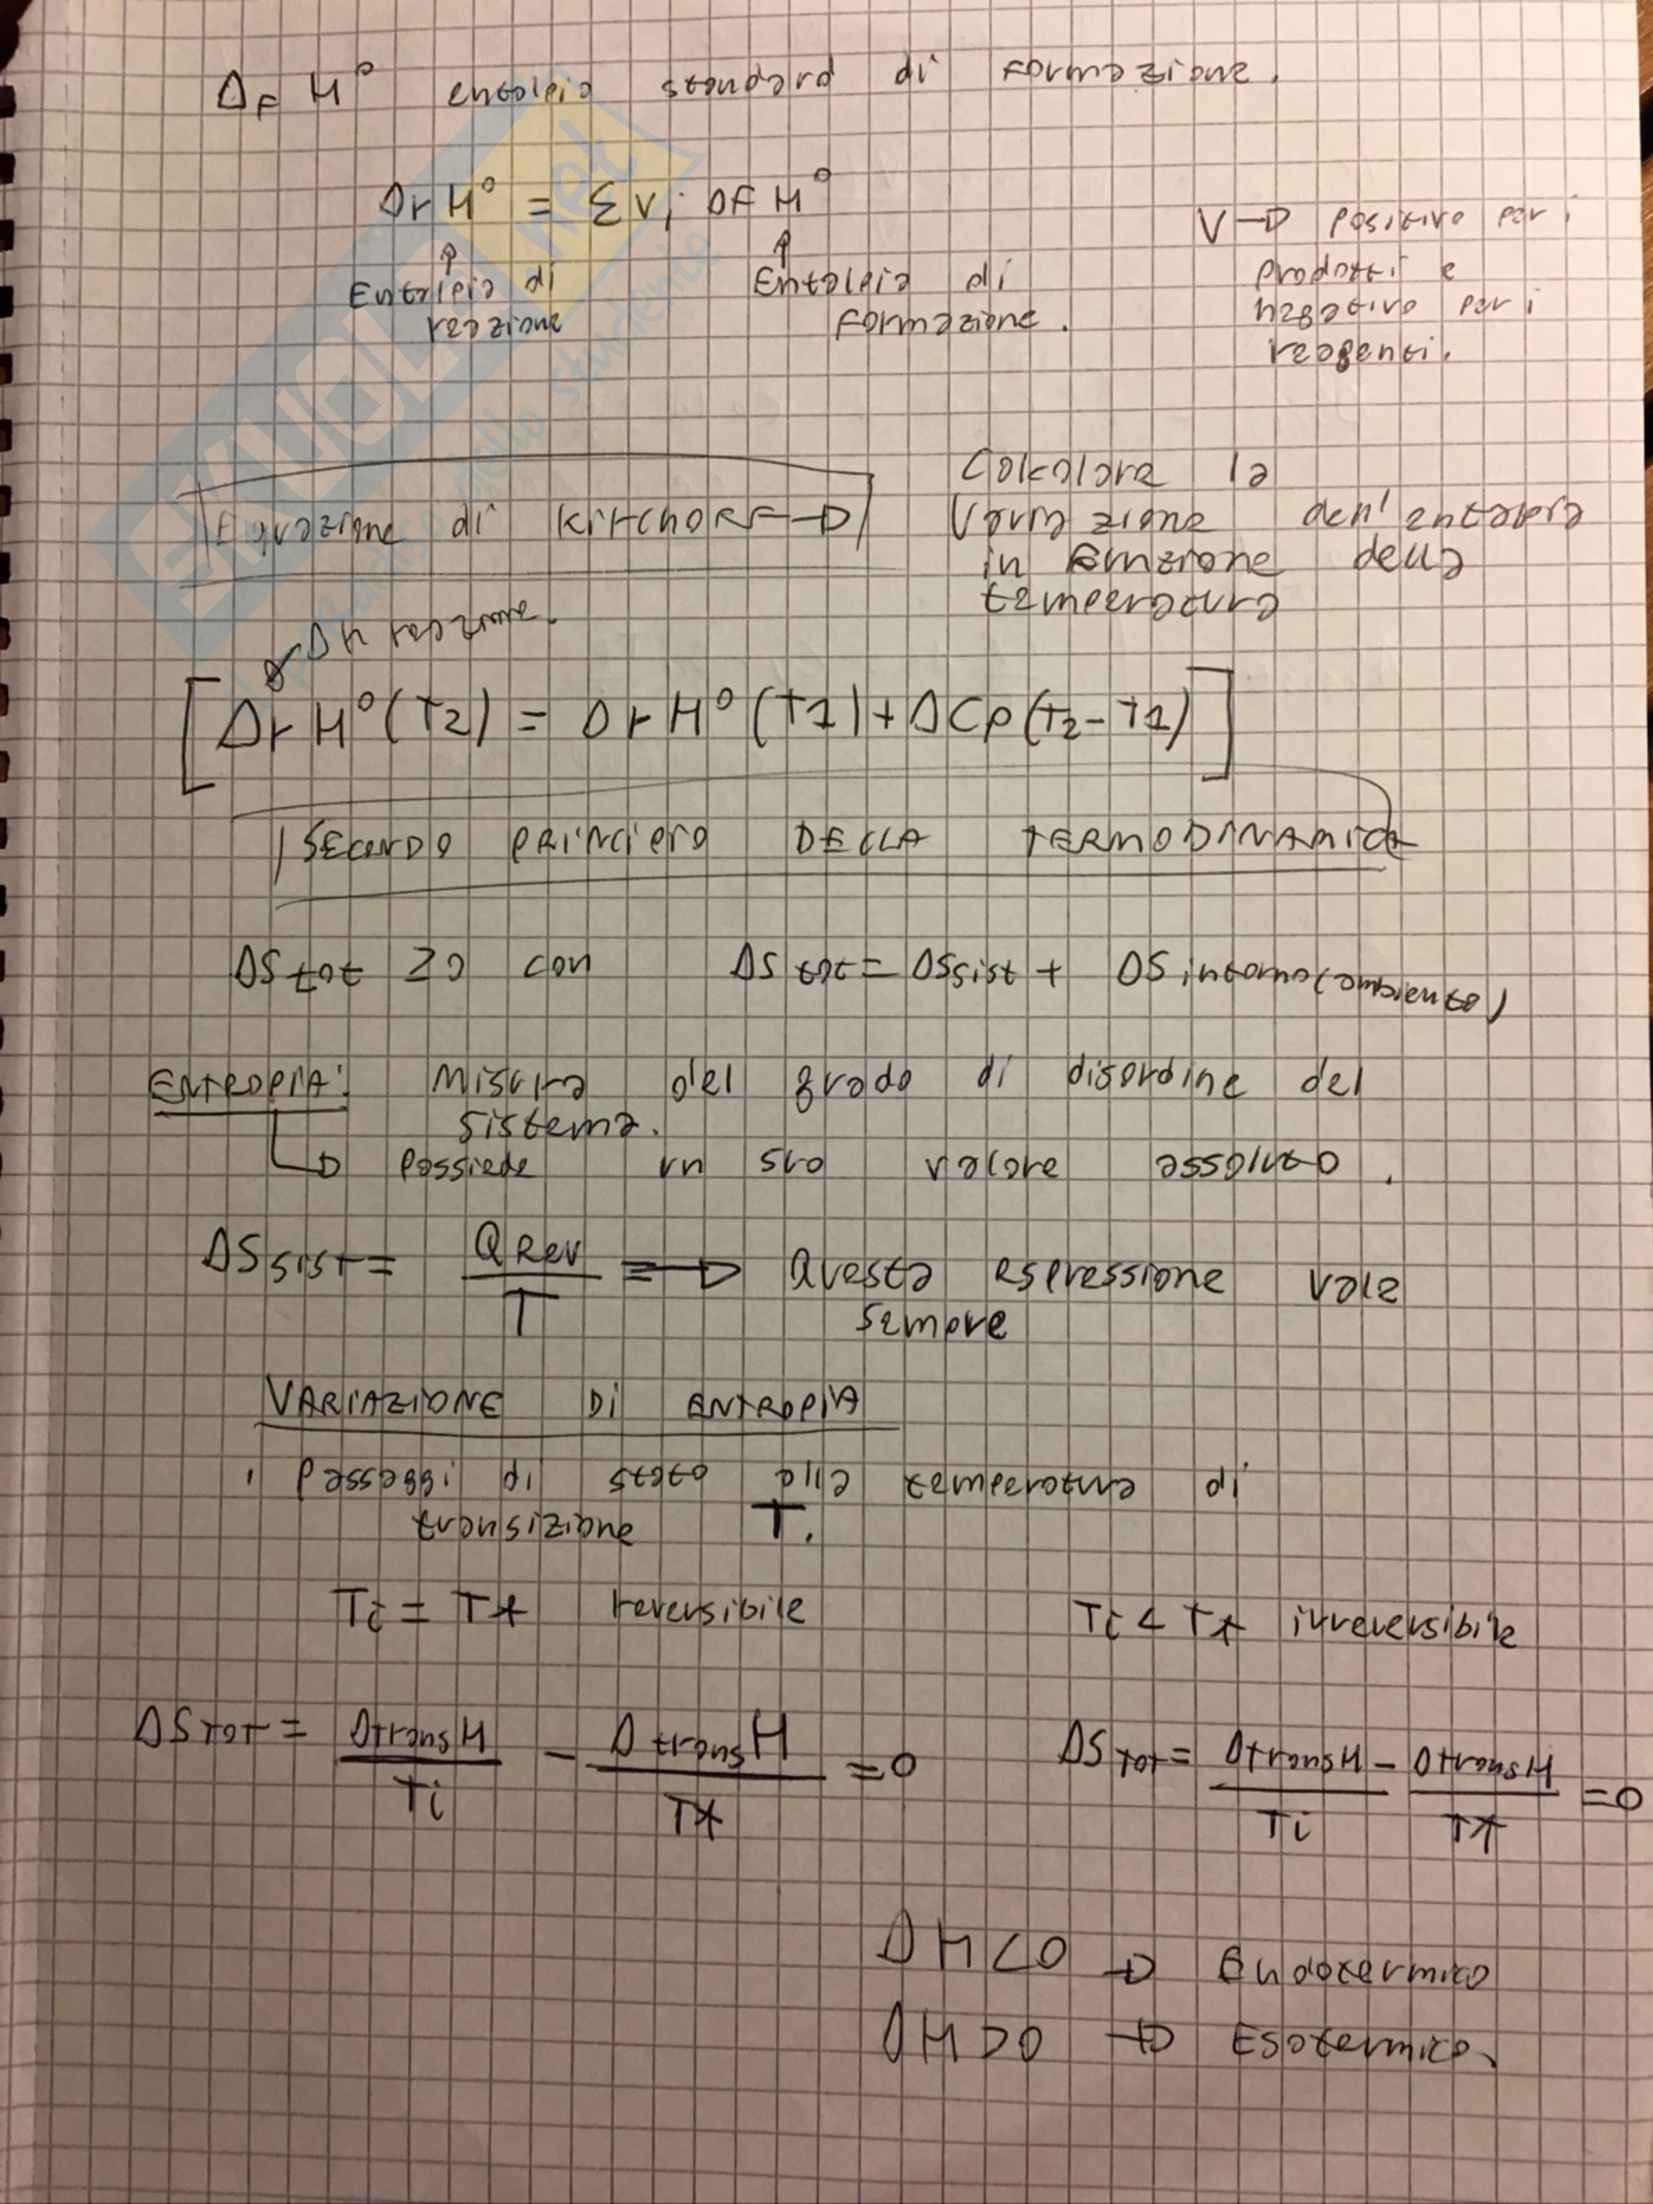 ΔF H° entalpia standard di formazione.
ΔrH° = Σ νi ΔF H°
Entalpia di reazione
Entalpia di formazione.
V → positivo per i
prodotti e
negativo per i
reagenti.
Equazione di Kirchoff →
Calcolare la
Variazione dell'entalpia
in funzione della
temperatura
ΔH reazione.
[ΔrH°(T2) = ΔrH°(T1) + ΔCp(T2-T1)]
SECONDO PRINCIPIO DELLA TERMODINAMICA
ΔS tot ≥0 con ΔS tot = ΔSsist + ΔS intorno(ambiente)
ENTROPIA: Misura del grado di disordine del
sistema.
→ Possiede un suo valore assoluto.
ΔSsist = QRev/T ⇒ Questa espressione vale
sempre
VARIAZIONE Di ENTROPIA
Passaggi di stato alla temperatura di
transizione T.
Ti = T* reversibile
Ti < T* irreversibile
ΔSTOT = ΔtransH/Ti - ΔtransH/T* =0
ΔS TOT = ΔtransH/Ti - ΔtransH/T* =0
ΔH<0 → Endotermico
ΔH>0 → Esotermico.